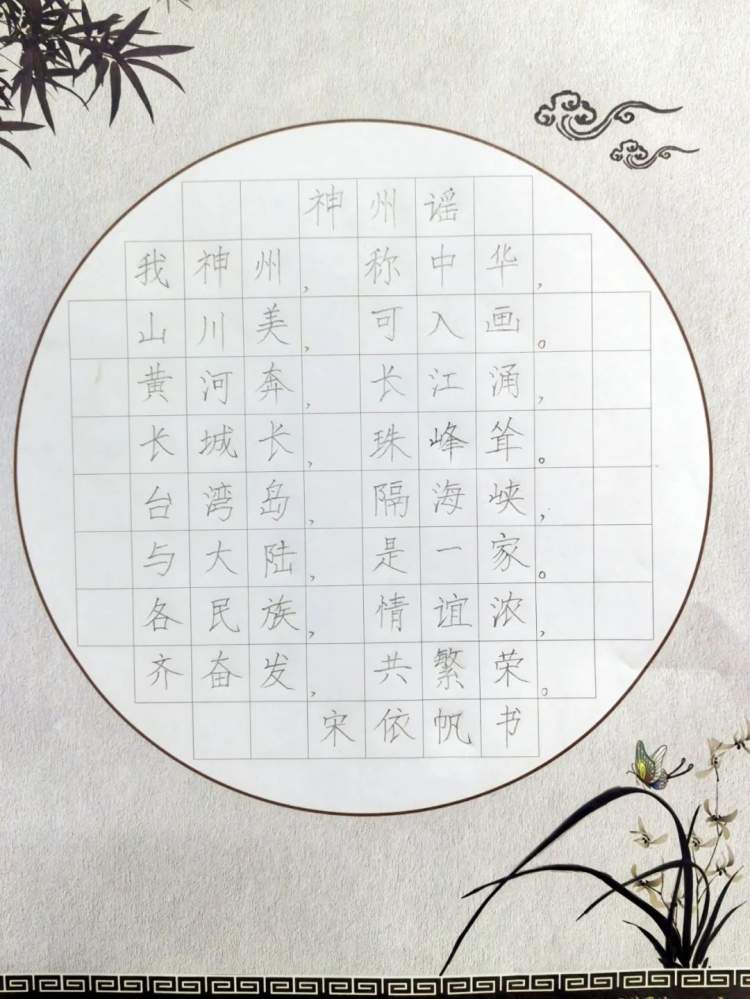 神州谣
我神州，称中华，
山川美，可入画。
黄河奔，长江涌，
长城长，珠峰耸。
台湾岛，隔海峡，
与大陆，是一家。
各民族，情谊浓，
齐奋发，共繁荣。
宋依帆书